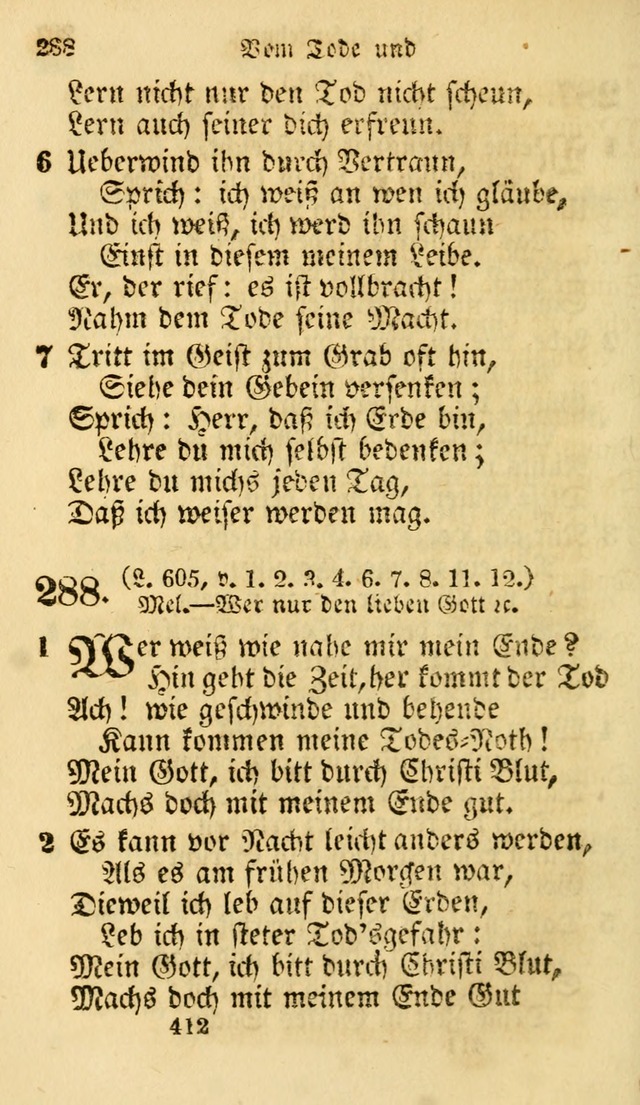 288 Vom Tode und
Lern nicht nur den Tod nicht scheun,
Lern auch seiner dich erfreun.
6 Ueberwind ihn durch Vertraun,
Sprich: ich weiß an wen ich gläube,
Und ich weiß, ich werd ihn schaun
Einst in diesem meinem Leibe.
Er, der rief: es ist vollbracht!
Nahm dem Tode seine Macht.
7 Tritt im Geist zum Grab oft hin,
Siehe dein Gebein versenken;
Sprich: Herr, daß ich Erde bin,
Lehre du mich selbst bedenken;
Lehre du michs jeden Tag,
Daß ich weiser werden mag.
288. (L. 605, v. 1. 2. 3. 4. 6. 7. 8. 11. 12.)
Mel.—Wer nur den lieben Gott ꝛc.
1 Wer weiß wie nahe mir mein Ende?
Hin geht die Zeit, her kommt der Tod
Ach! wie geschwinde und behende
Kann kommen meine Todes-Noth!
Mein Gott, ich bitt durch Christi Blut,
Machs doch mit meinem Ende gut.
2 Es kann vor Nacht leicht anders werden,
Als es am frühen Morgen war,
Dieweil ich leb auf dieser Erden,
Leb ich in steter Tod'sgefahr:
Mein Gott, ich bitt durch Christi Blut,
Machs doch mit meinem Ende Gut
412